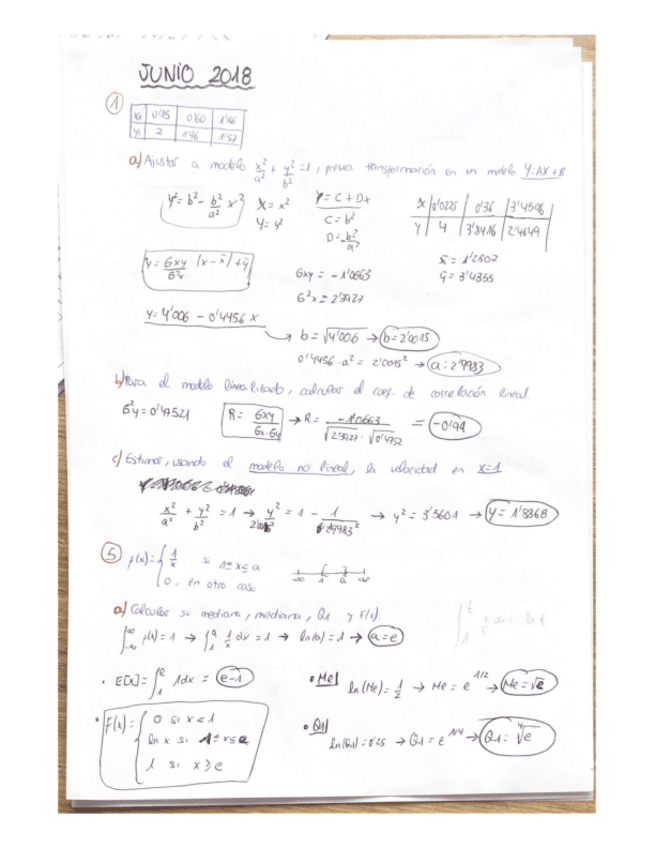 JUNIO 2018
①
xi | 0'15 | 0'60 | 1'86
yi | 2 | 1'96 | 1'57
a) Ajustar a modelo x²/a² + y²/b² = 1, previa transformación en un modelo Y=AX+B
y² = b² - b²/a² x²
X = x²
Y = y²
Y = C + DX
C = b²
D = b²/a²
X | 0'0225 | 0'36 | 3'4596
Y | 4 | 3'8416 | 2'4649
x̄ = 1'2807
ȳ = 3'4355
Y = Gxy/G²x (x - x̄) + ȳ
Gxy = -1'0663
G²x = 2'3927
Y = 4'006 - 0'4456 X
→ b = √4'006 → b = 2'0015
0'4456 · a² = 2'0015² → a = 2'9983
b) Para el modelo linealizado, calcular el coef. de correlación lineal.
G²y = 0'47521
R = Gxy/Gx·Gy → R = -1'0663/√2'3927 · √0'4752 = -0'99
c) Estimar, usando el modelo no lineal, la velocidad en x=1
x²/a² + y²/b² = 1 → y²/2'0015² = 1 - 1/2'9983² → y² = 3'5601 → y = 1'8868
⑤ f(x) = { 1/x si 1≤x≤a
0, en otro caso
-∞ 1 a +∞
a) Calcular su mediana, mediana, Q1 y F(x).
∫ f(x) = 1 → ∫₁ᵃ 1/x dx = 1 → ln(a) = 1 → a = e
∫₁ᵗ 1/x dx = ln t
• E[X] = ∫₁ᵉ 1dx = e-1
• Me| ln(Me) = 1/2 → Me = e^1/2 → Me = √e
• F(x) = { 0 si x<1
ln x si 1≤x≤e
1 si x≥e
• Q1| ln(Q1) = 0'25 → Q1 = e^1/4 → Q1 = ⁴√e